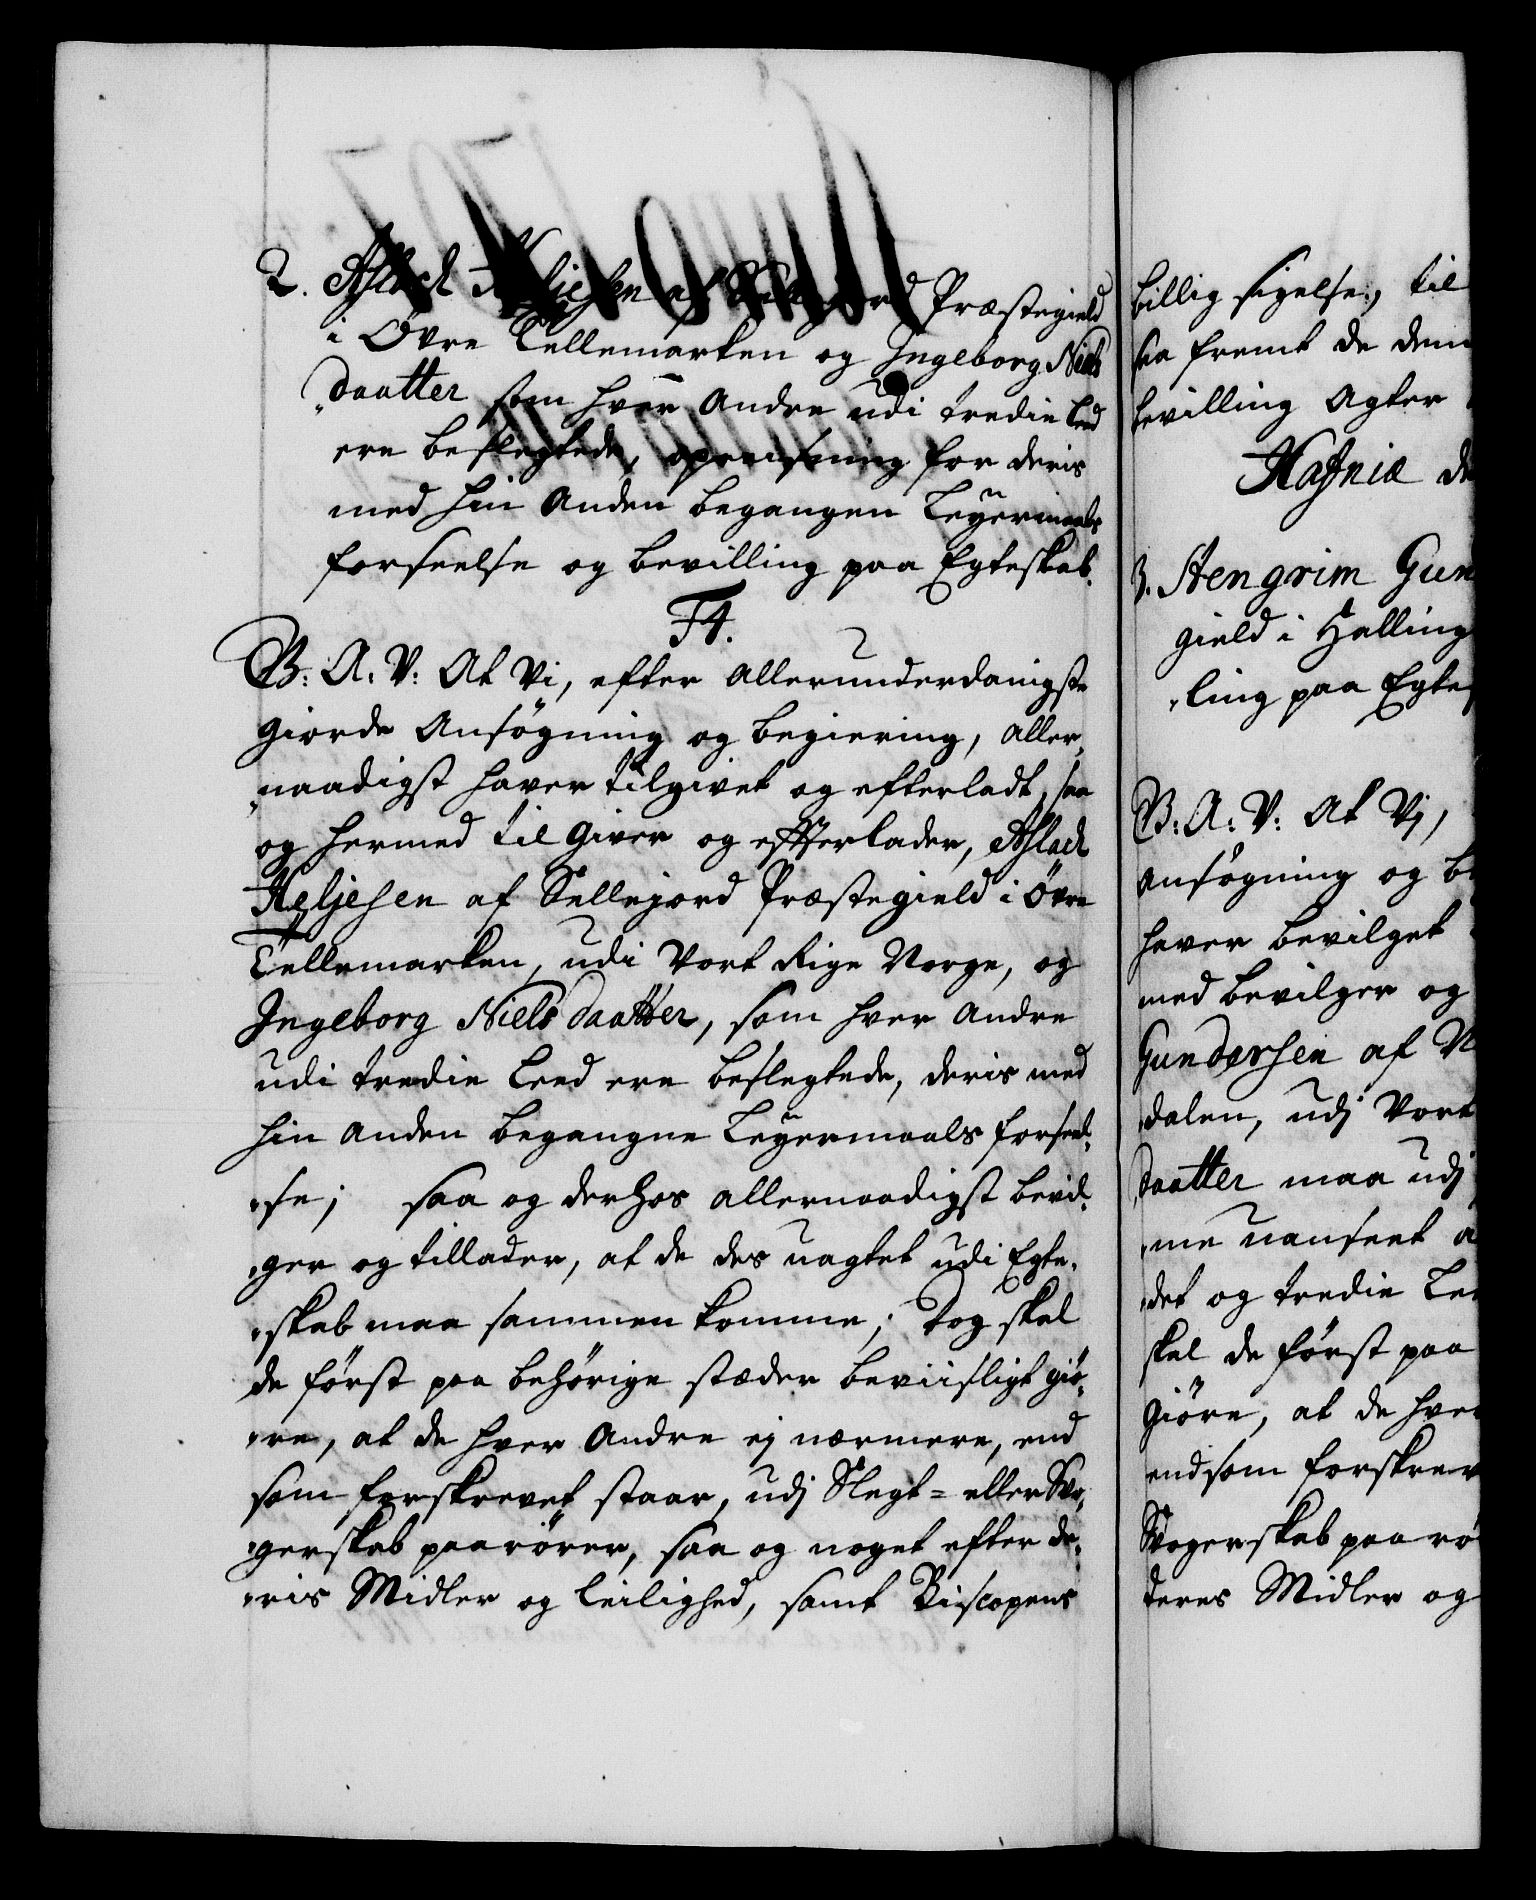 2. Aslach Keljesen af Sellejord Præstegield
i Øvre Tellemarken og Ingeborg Niels
daatter som hver Andre udi tredie Leed
ere beslegtede, opreisning for deris
med hin Anden begangen Leyermaals
forseelse og bevilling paa Egteskab.
F4.
B: A: V: At Vi, efter allerunderdanigste
giorde Ansøgning og begiering, aller,,
,,naadigst haver tilgivet og efterladt, saa
og hermed tilgiver og effterlader, Aslach
Keljesen af Sellejord Præstegield i Øvre
Tellemarken, udi Vort Rige Norge, og
Ingeborg Niels daatter, som hver Andre
udi tredie Leed ere beslegtede, deris med
hin Anden begangne Leyermaals forseel,,
,,se; saa og derhos allernaadigst bevil,,
,,ger og tillader, at de des uagtet udi Egte,,
,,skab maa sammen komme; Dog skal
de først paa behørige stæder beviisligt giø,,
,,re, at de hver Andre ej nærmere, end
som forskrevet staar, udj Slegt- eller Svo,,
,,gerskab paarører, saa og noget efter de,,
,,ris Midler og leilighed, samt Biscopens
billig sigelse, til
saa fremt de denne
bevilling Agter
Hafniæ d
3. Stengrim Gun
gield i Halling
,,ling paa Egte
B: A: V: At Vj,
ansøgning og b
haver bevilget
med bevilger og
Gundersen af N
dalen, udj Vort
daatter maa udj
,,me uanseet a
,,det og tredie Lee
skal de først paa
giøre, at de hver
end som forskrev
Svogerskab paarø
deres Midler og